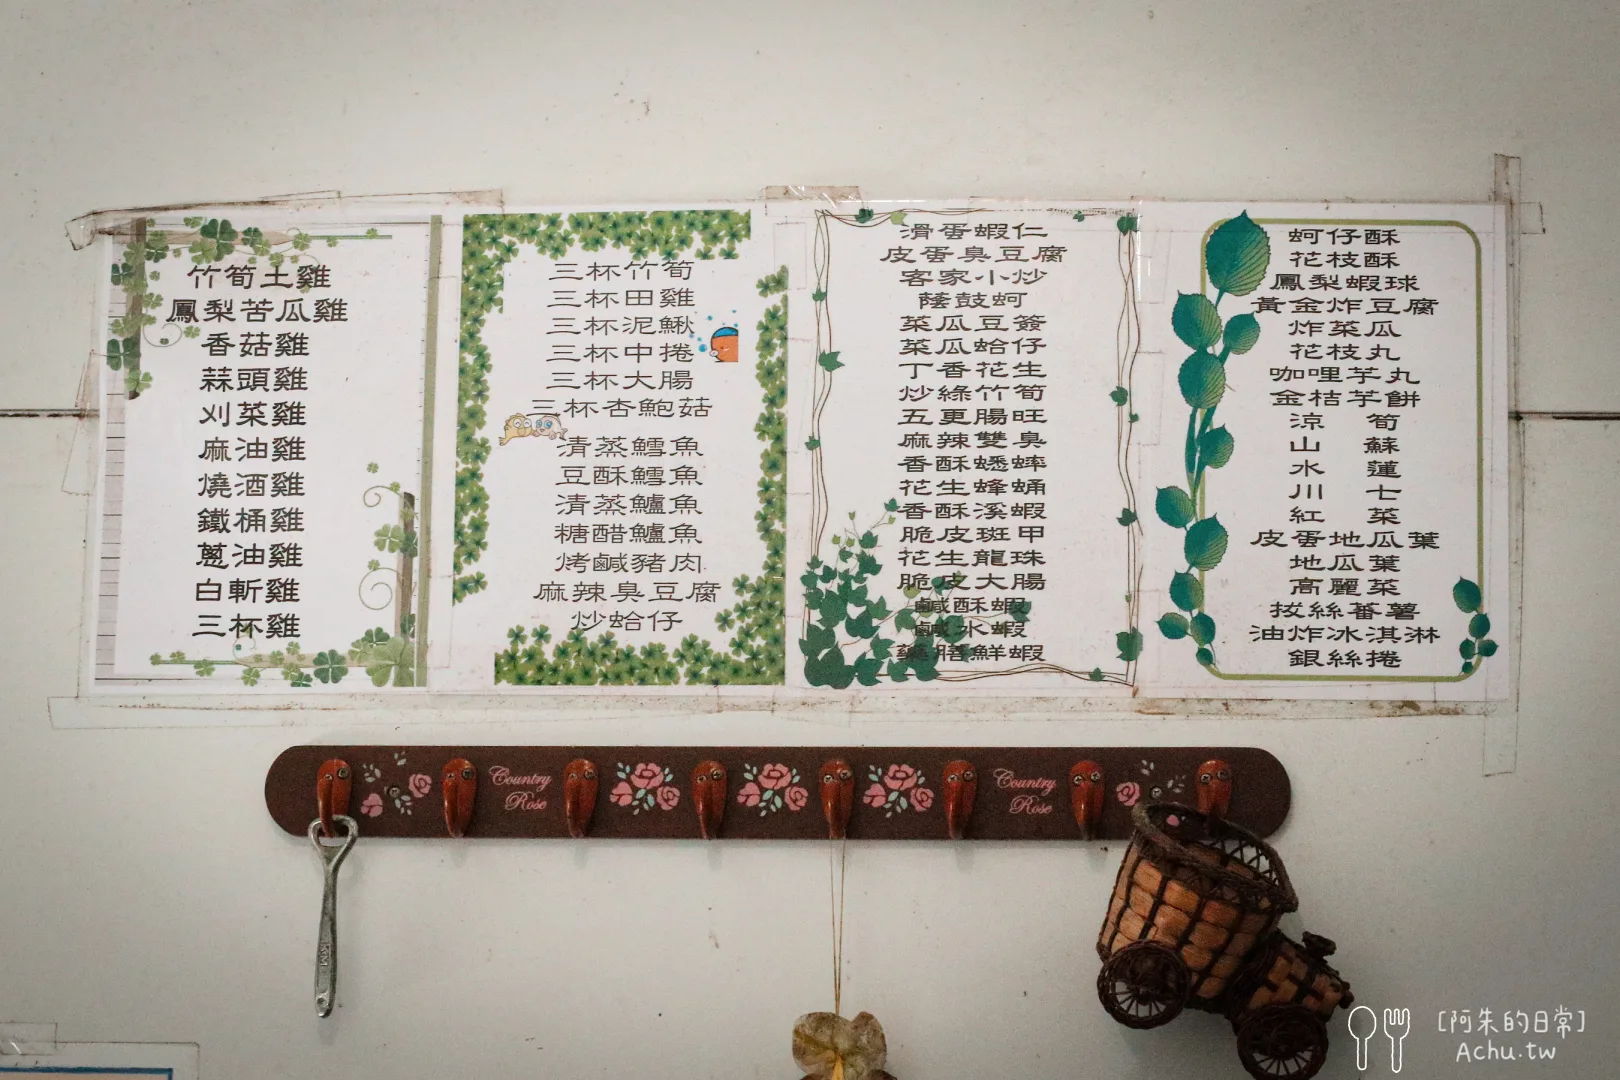 竹筍土雞
鳳梨苦瓜雞
香菇雞
蒜頭雞
刈菜雞
麻油雞
燒酒雞
鐵桶雞
蔥油雞
白斬雞
三杯雞
三杯竹筍
三杯田雞
三杯泥鰍
三杯中捲
三杯大腸
三杯杏鮑菇
清蒸鱈魚
豆酥鱈魚
清蒸鱸魚
糖醋鱸魚
烤鹹豬肉
麻辣臭豆腐
炒蛤仔
滑蛋蝦仁
皮蛋臭豆腐
客家小炒
蔭鼓蚵
菜瓜豆簽
菜瓜蛤仔
丁香花生
炒綠竹筍
五更腸旺
麻辣雙臭
香酥蟋蟀
花生蜂蛹
香酥溪蝦
脆皮斑甲
花生龍珠
脆皮大腸
鹹酥蝦
鹹水蝦
藥膳鮮蝦
蚵仔酥
花枝酥
鳳梨蝦球
黃金炸豆腐
炸菜瓜
花枝丸
咖哩芋丸
金桔芋餅
涼 筍
山 蘇
水 蓮
川 七
紅 菜
皮蛋地瓜葉
地瓜葉
高麗菜
拔絲蕃薯
油炸冰淇淋
銀絲捲
Country Rose
Country Rose
[阿朱的日常]
Achu.tw